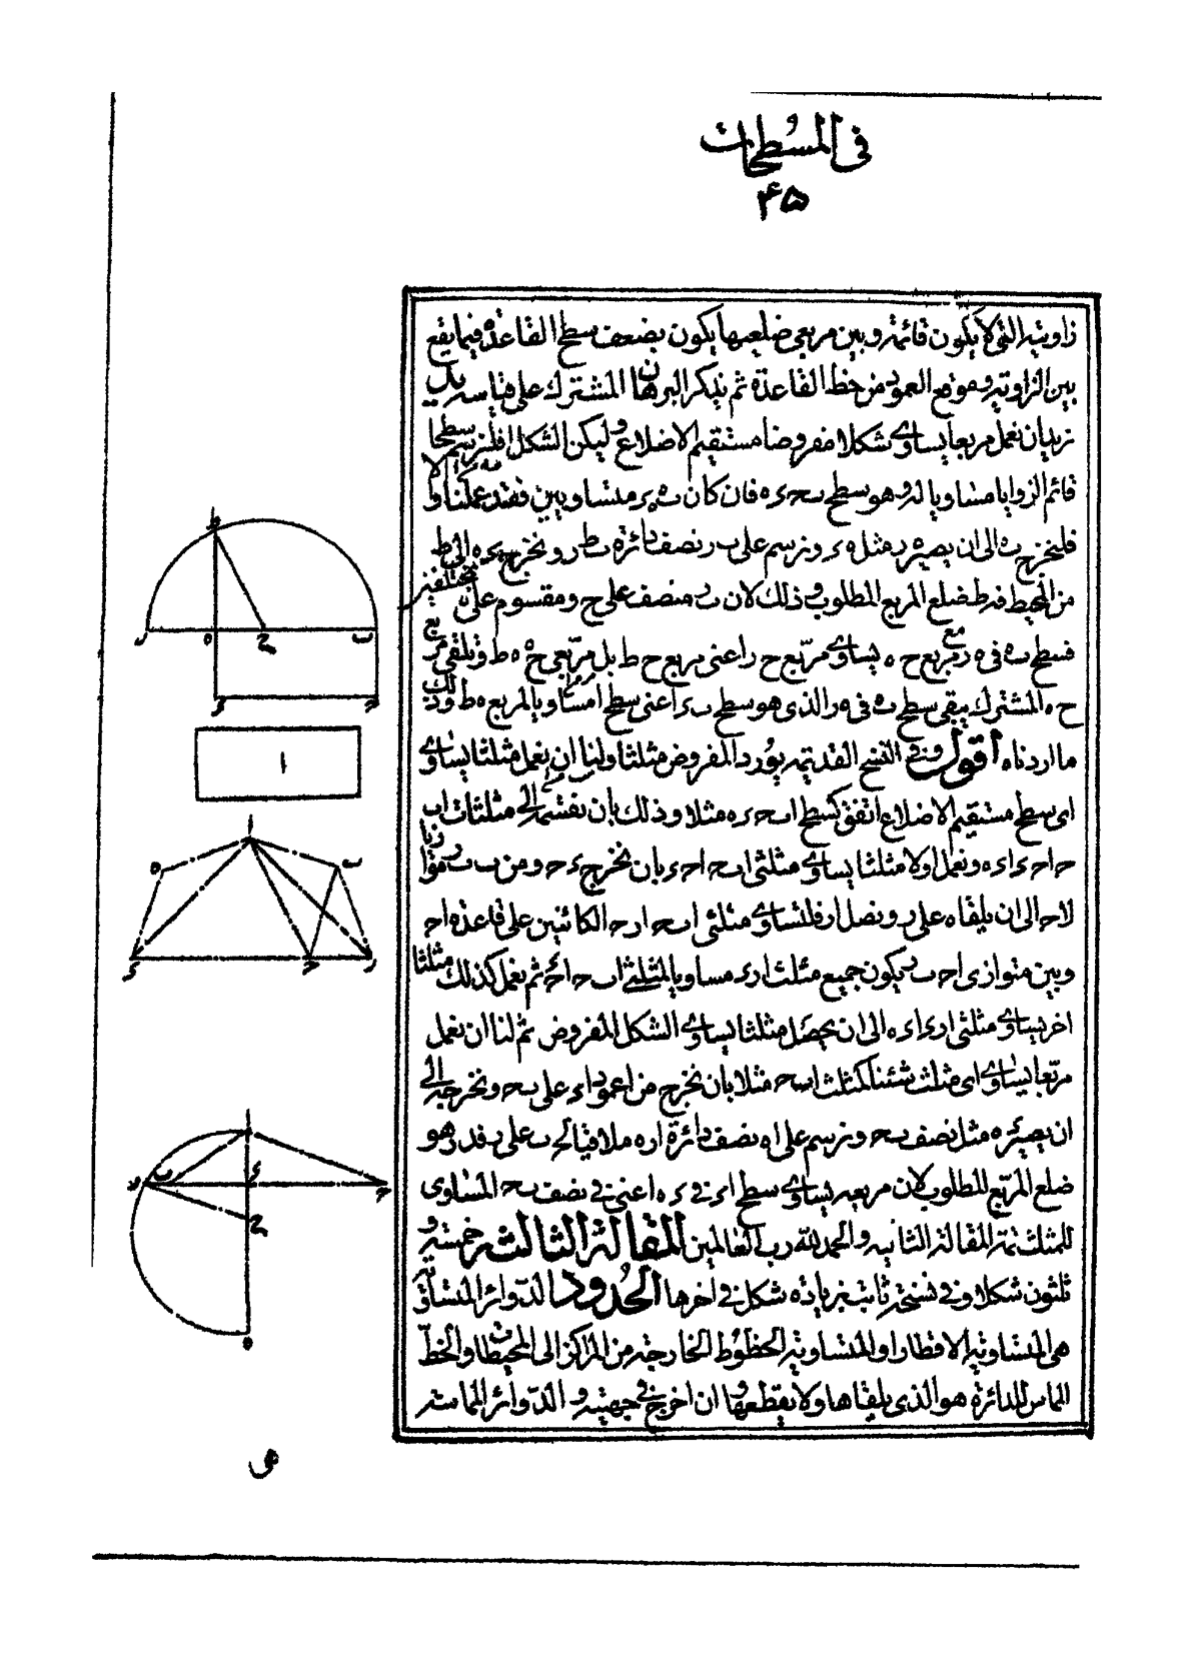 في المسطحات
۴۵
زاويته التي لا يكون قائمة وبين مربعي ضلعيها يكون بضعف سطح القاعدة فيما يقع
بين الزاوية وموقع العمود من خط القاعدة ثم يذكر البرهان المشترك على قياسه يد
نريد ان نعمل مربعا يساوي شكلا مفروضا مستقيم الاضلاع وليكن الشكل ا فلنرسم سطحا
قائم الزوايا مساويا له وهو سطح ب ح ء ه فان كان ب ه ه ء متساويين فقد عملنا والا
فلنخرج ب ه الى ان يصير ه ر مثل ه ء ونرسم على ب ر نصف دائرة ب ط ر ونخرج ء ه الى ط
من المحيط فه ط ضلع المربع المطلوب وذلك لان ب ر منصف على ح ومقسوم على ه بمختلفين
فسطح ب ه في ه ر مع مربع ح ه يساوي مربع ح ر اعني مربع ح ط بل مربعي ح ه ه ط ونلقي مربع
ح ه المشترك يبقى سطح ب ه في ه ر الذي هو سطح ب ء اعني سطح ا مساويا لمربع ه ط وذلك
ما اردناه اقول وفي النسخ القديمة يورد المفروض مثلثا ولنا ان نعمل مثلثا يساوي
اي سطح مستقيم الاضلاع اتفق كسطح ا ب ح ء ه مثلا وذلك بان نقسمه الى مثلثات ا ب
ح ا ح ء ا ء ه ونعمل اولا مثلثا يساوي مثلثي ا ب ح ا ح ء بان نخرج ء ح ومن ب ب ر موازيا
لا ح الى ان يلقاه على ر ونصل ا ر فلتساوي مثلثي ا ب ح ا ر ح الكائنين على قاعدة ا ح
وبين متوازي ا ح ب ر يكون جميع مثلث ا ر ء مساويا لمثلثي ا ب ح ا ح ء ثم نعمل كذلك مثلثا
اخر يساوي مثلثي ا ر ء ا ء ه الى ان يحصل مثلثا يساوي الشكل المفروض ثم لنا ان نعمل
مربعا يساوي اي مثلث شئنا كمثلث ا ب ح مثلا بان نخرج من ا عمود ا ء على ب ح ونخرجه الى
ان يصير ء ه مثل نصف ب ح ونرسم على ا ه نصف دائرة ا ر ه ملاقيا لح ب على ر فدر هو
ضلع المربع المطلوب لان مربعه يساوي سطح ا ء في ء ه اعني في نصف ب ح المساوي
للمثلث تمت المقالة الثانية والحمد لله رب العالمين المقالة الثالثة خمسة و
ثلثون شكلا وفي نسخة ثابت بزيادة شكل في اخرها الحدود الدوائر المتساوية
هي المتساوية الاقطار او المتساوية الخطوط الخارجة من المراكز الى المحيطات والخط
المماس للدائرة هو الذي يلقاها ولا يقطعها وان اخرج في جهتيه و الدوائر المماسة
ط
ر ه ح ب
ء ح
ا
ا
ه ب
ء ح ر
ا
ر ب ء ح
ح
ه
هى